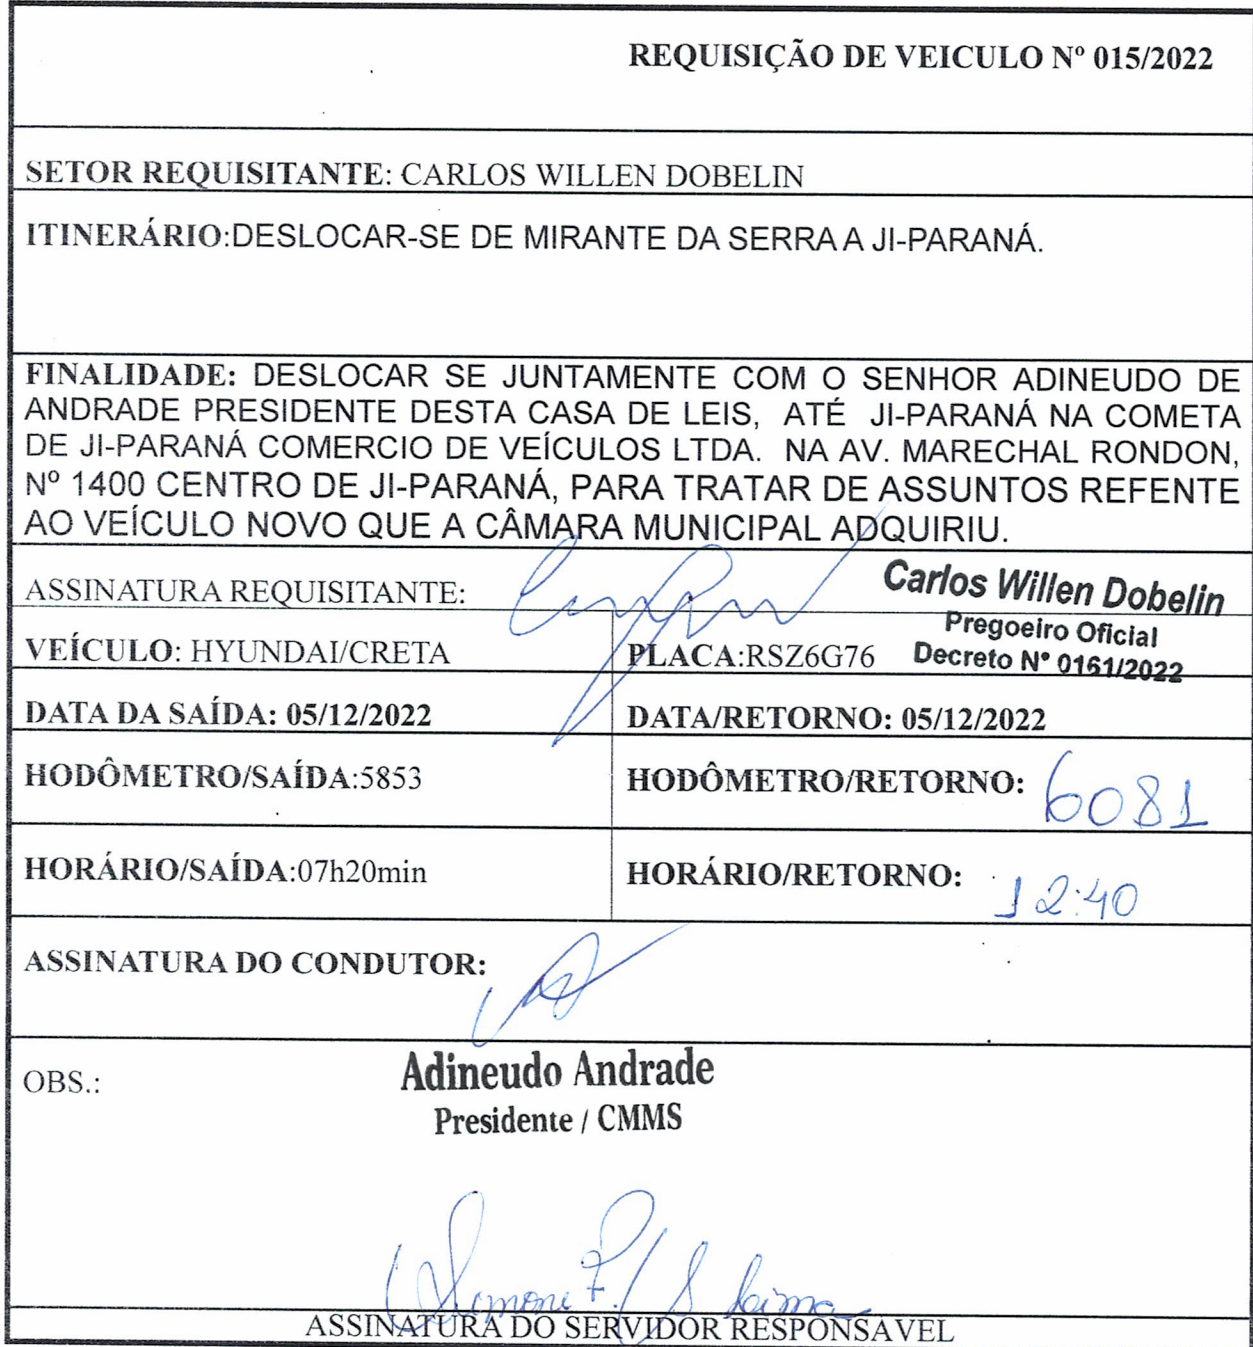 REQUISIÇÃO DE VEICULO Nº 015/2022
SETOR REQUISITANTE: CARLOS WILLEN DOBELIN
ITINERÁRIO:DESLOCAR-SE DE MIRANTE DA SERRA A JI-PARANÁ.
FINALIDADE: DESLOCAR SE JUNTAMENTE COM O SENHOR ADINEUDO DE
ANDRADE PRESIDENTE DESTA CASA DE LEIS, ATÉ JI-PARANÁ NA COMETA
DE JI-PARANÁ COMERCIO DE VEÍCULOS LTDA. NA AV. MARECHAL RONDON,
Nº 1400 CENTRO DE JI-PARANÁ, PARA TRATAR DE ASSUNTOS REFENTE
AO VEÍCULO NOVO QUE A CÂMARA MUNICIPAL ADQUIRIU.
ASSINATURA REQUISITANTE:
Carlos Willen Dobelin
Pregoeiro Oficial
Decreto Nº 0161/2022
VEÍCULO: HYUNDAI/CRETA
PLACA:RSZ6G76
DATA DA SAÍDA: 05/12/2022
DATA/RETORNO: 05/12/2022
HODÔMETRO/SAÍDA:5853
HODÔMETRO/RETORNO: 6081
HORÁRIO/SAÍDA:07h20min
HORÁRIO/RETORNO: 12:40
ASSINATURA DO CONDUTOR:
OBS.:
Adineudo Andrade
Presidente / CMMS
Simone F. S Lima
ASSINATURA DO SERVIDOR RESPONSAVEL